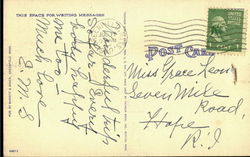 THIS SPACE FOR WRITING MESSAGES
Wonderful trip
So far. Every
body happy
me too.
Much love
E. M. S.
POST CARD
Miss Grace Leon
Seven Mile
Road,
Hope
R. I.